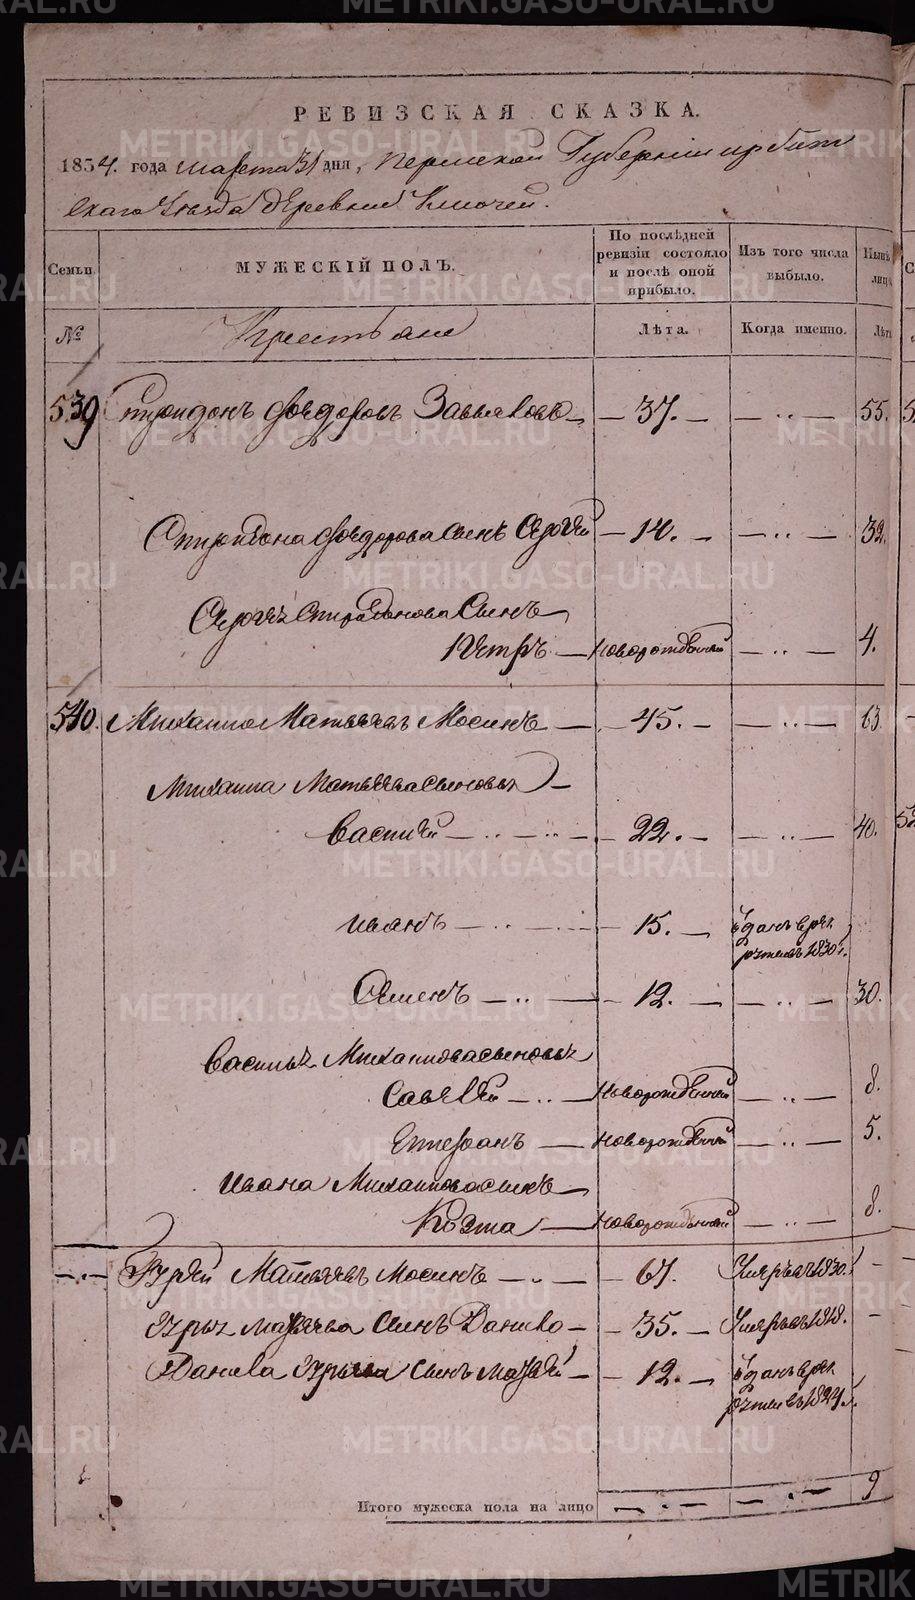 РЕВИЗСКАЯ СКАЗКА.
1834. года марта 31 дня, Пермской Губернии Ирбит
скаго Уезда деревни Ключей.
Семьи. МУЖЕСКІЙ ПОЛЪ. По послѣдней ревизіи состояло и послѣ оной прибыло. Изъ того числа выбыло. Нынѣ лиц
№ Крестьяне Лѣта. Когда именно. Лѣт
539 Спиридонъ Федоровъ Завьяловъ — 37. — — .. — 55.
Спиридона Федорова сынъ Сергѣй — 14. — — .. — 32.
Сергѣя Спиридонова Сынъ —
Петръ — Новорожденный — .. — 4.
540. Михаило Матвѣевъ Мосинъ — 45. — — .. — 63.
Михаила Матвѣева сыновья —
Василій — .. — .. — 22. — — .. — 40.
Иванъ — .. — 15. — Отданъ въ рек
рутыъ въ 1830 г.
Семенъ — .. — 12. — — .. — 30.
Василья Михаилова сыновья
Савелій — .. — Новорожденный — .. — 8.
Степанъ — Новорожденный — .. — 5.
Ивана Михаилова сынъ —
Козма — Новорожденный — .. — 8.
— .. — Гурей Матвѣевъ Мосинъ — .. — 67. Умеръ въ 1830. —
Гурья Матвѣева Сынъ Данило — 35. — Умеръ въ 1818. —
Данила Гурьева сынъ Матвѣй — 12. — Отданъ в рек
руты въ 1824 г.
Итого мужеска пола на лицо — .. — — .. — 9
METRIKI.GASO-URAL.RU